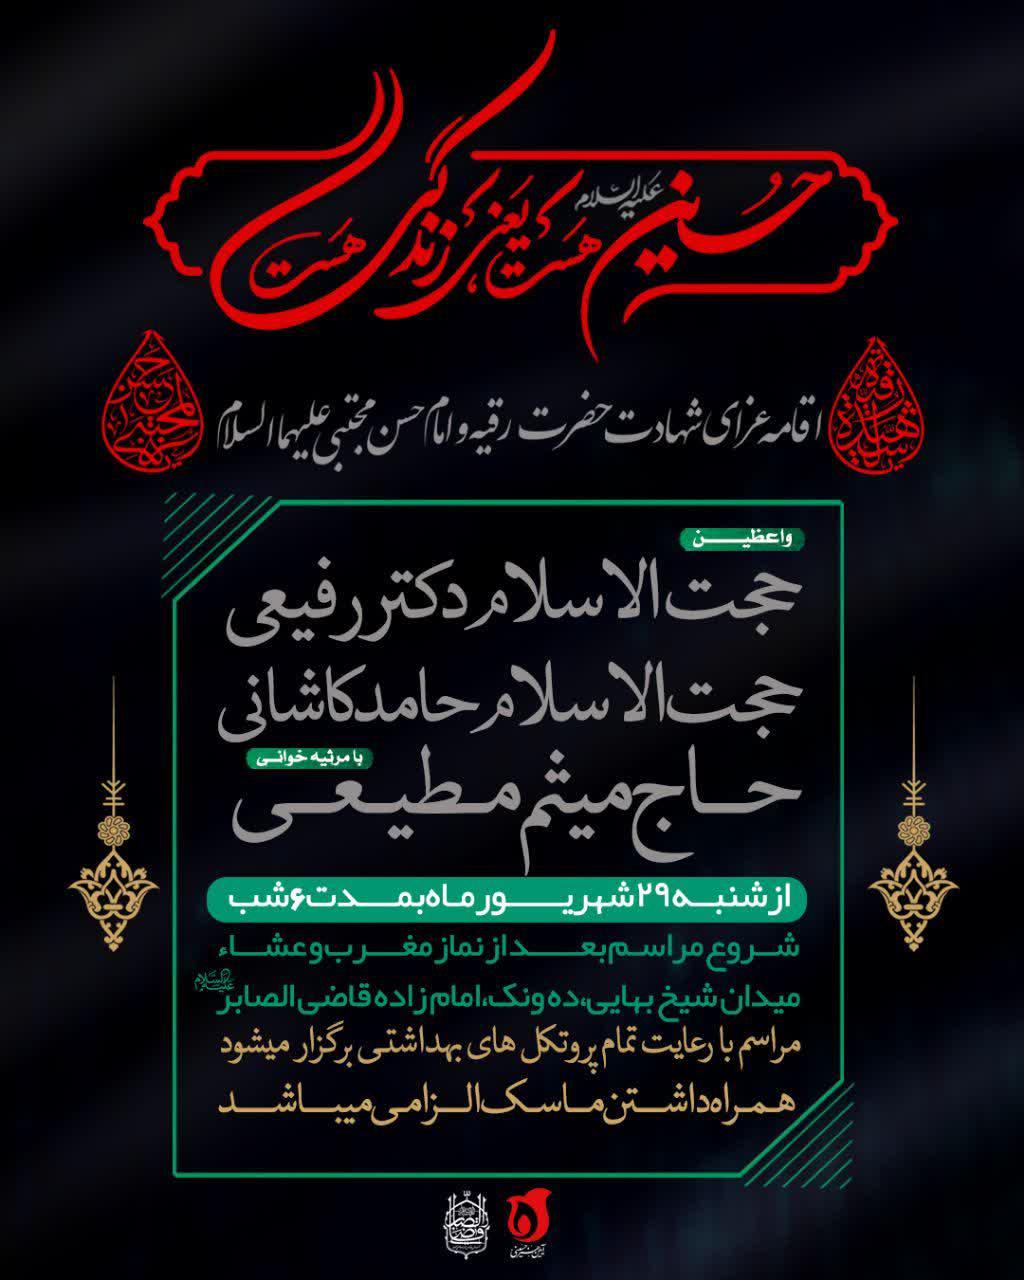 حسین علیه السلام هست یعنی زندگی هست
اقامه عزای شهادت حضرت رقیه و امام حسن مجتبی علیهما السلام
حسن المجتبی
واعظین
حجت الاسلام دکتر رفیعی
حجت الاسلام حامد کاشانی
با مرثیه خوانی
حاج میثم مطیعی
از شنبه ۲۹ شهریور ماه بمدت ۶ شب
شروع مراسم بعد از نماز مغرب و عشاء
میدان شیخ بهایی، ده ونک، امام زاده قاضی الصابر علیه السلام
مراسم با رعایت تمام پروتکل های بهداشتی برگزار میشود
همراه داشتن ماسک الزامی میباشد